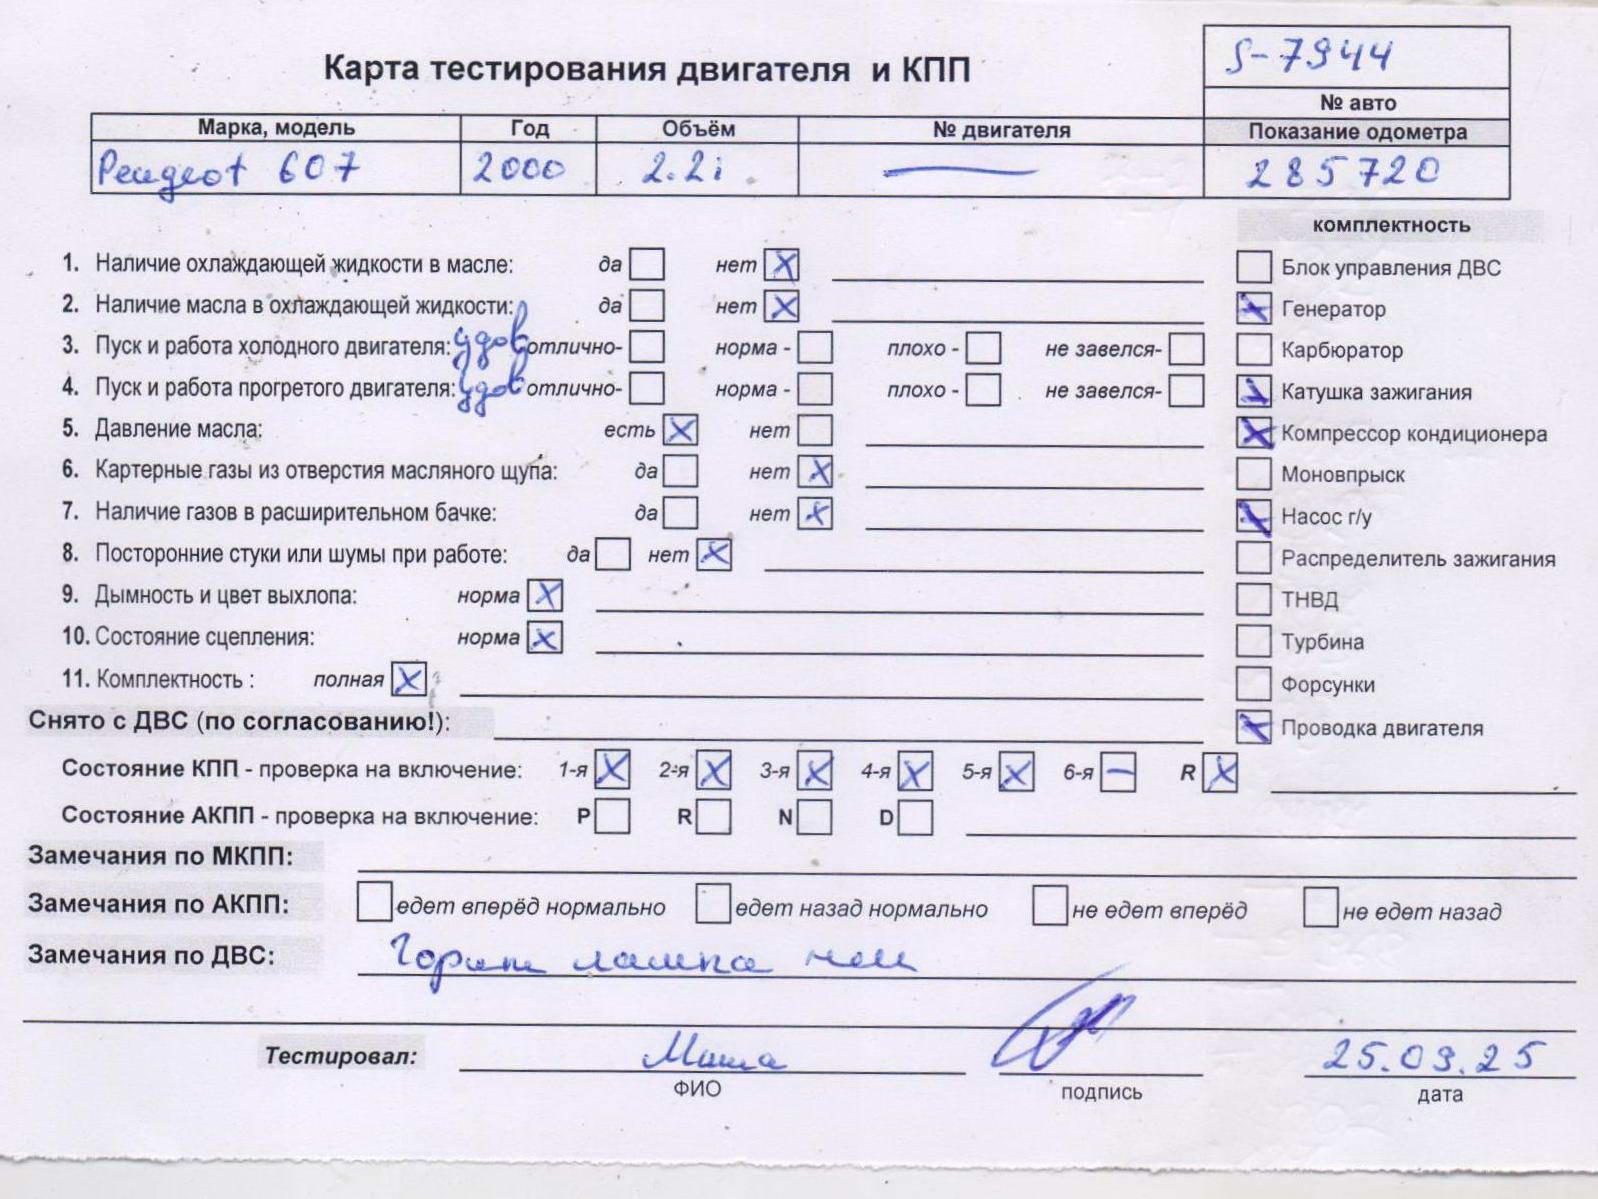 S-7944
Карта тестирования двигателя и КПП
№ авто
Марка, модель Год Объём № двигателя Показание одометра
Peugeot 607 2000 2.2i — 285720
комплектность
1. Наличие охлаждающей жидкости в масле: да нет X
Блок управления ДВС
2. Наличие масла в охлаждающей жидкости: да нет X
Генератор
3. Пуск и работа холодного двигателя: удов отлично- норма - плохо - не завелся-
Карбюратор
4. Пуск и работа прогретого двигателя: удов отлично- норма - плохо - не завелся-
Катушка зажигания
5. Давление масла: есть X нет
Компрессор кондиционера
6. Картерные газы из отверстия масляного щупа: да нет X
Моновпрыск
7. Наличие газов в расширительном бачке: да нет X
Насос г/у
8. Посторонние стуки или шумы при работе: да нет X
Распределитель зажигания
9. Дымность и цвет выхлопа: норма X
ТНВД
10. Состояние сцепления: норма X
Турбина
11. Комплектность : полная X
Форсунки
Снято с ДВС (по согласованию!):
Проводка двигателя
Состояние КПП - проверка на включение: 1-я X 2-я X 3-я X 4-я X 5-я X 6-я — R X
Состояние АКПП - проверка на включение: P R N D
Замечания по МКПП:
Замечания по АКПП: едет вперёд нормально едет назад нормально не едет вперёд не едет назад
Замечания по ДВС: Горит лампа чек
Тестировал: Миша 25.09.25
ФИО подпись дата